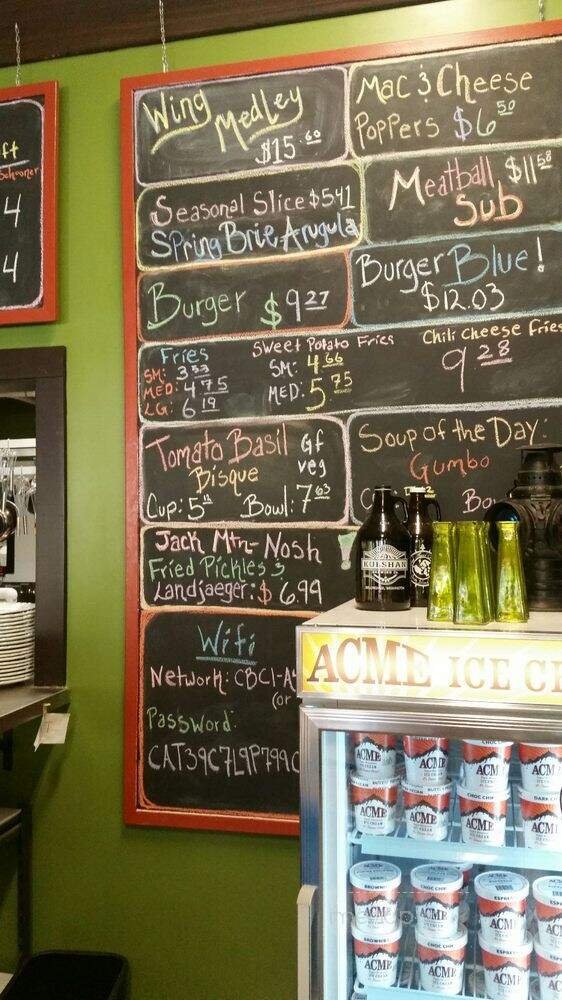 ft
Schooner
4
4
Wing Medley
$15.60
Mac & Cheese
Poppers $6.50
Seasonal Slice $5.41
Spring Brie Arugula
Meatball $11.58
Sub
Burger $9.27
Burger Blue!
$12.03
Fries
SM: 3.53
MED: 4.75
LG: 6.19
Sweet Potato Fries
SM: 4.66
MED: 5.75
Chili Cheese Fries
9.28
Tomato Basil
Bisque
Gf
veg
Cup: 5
Bowl: 7.63
Soup of the Day:
Gumbo
Jack Mtn- Nosh
Fried Pickles &
Landjaeger: $6.99
!
Wifi
Network: CBC1-A
(or
Password:
CAT39C7L9P799C
KULSHAN
ACME ICE C
ACME
ACME
CHOC CHIP
ESPRE